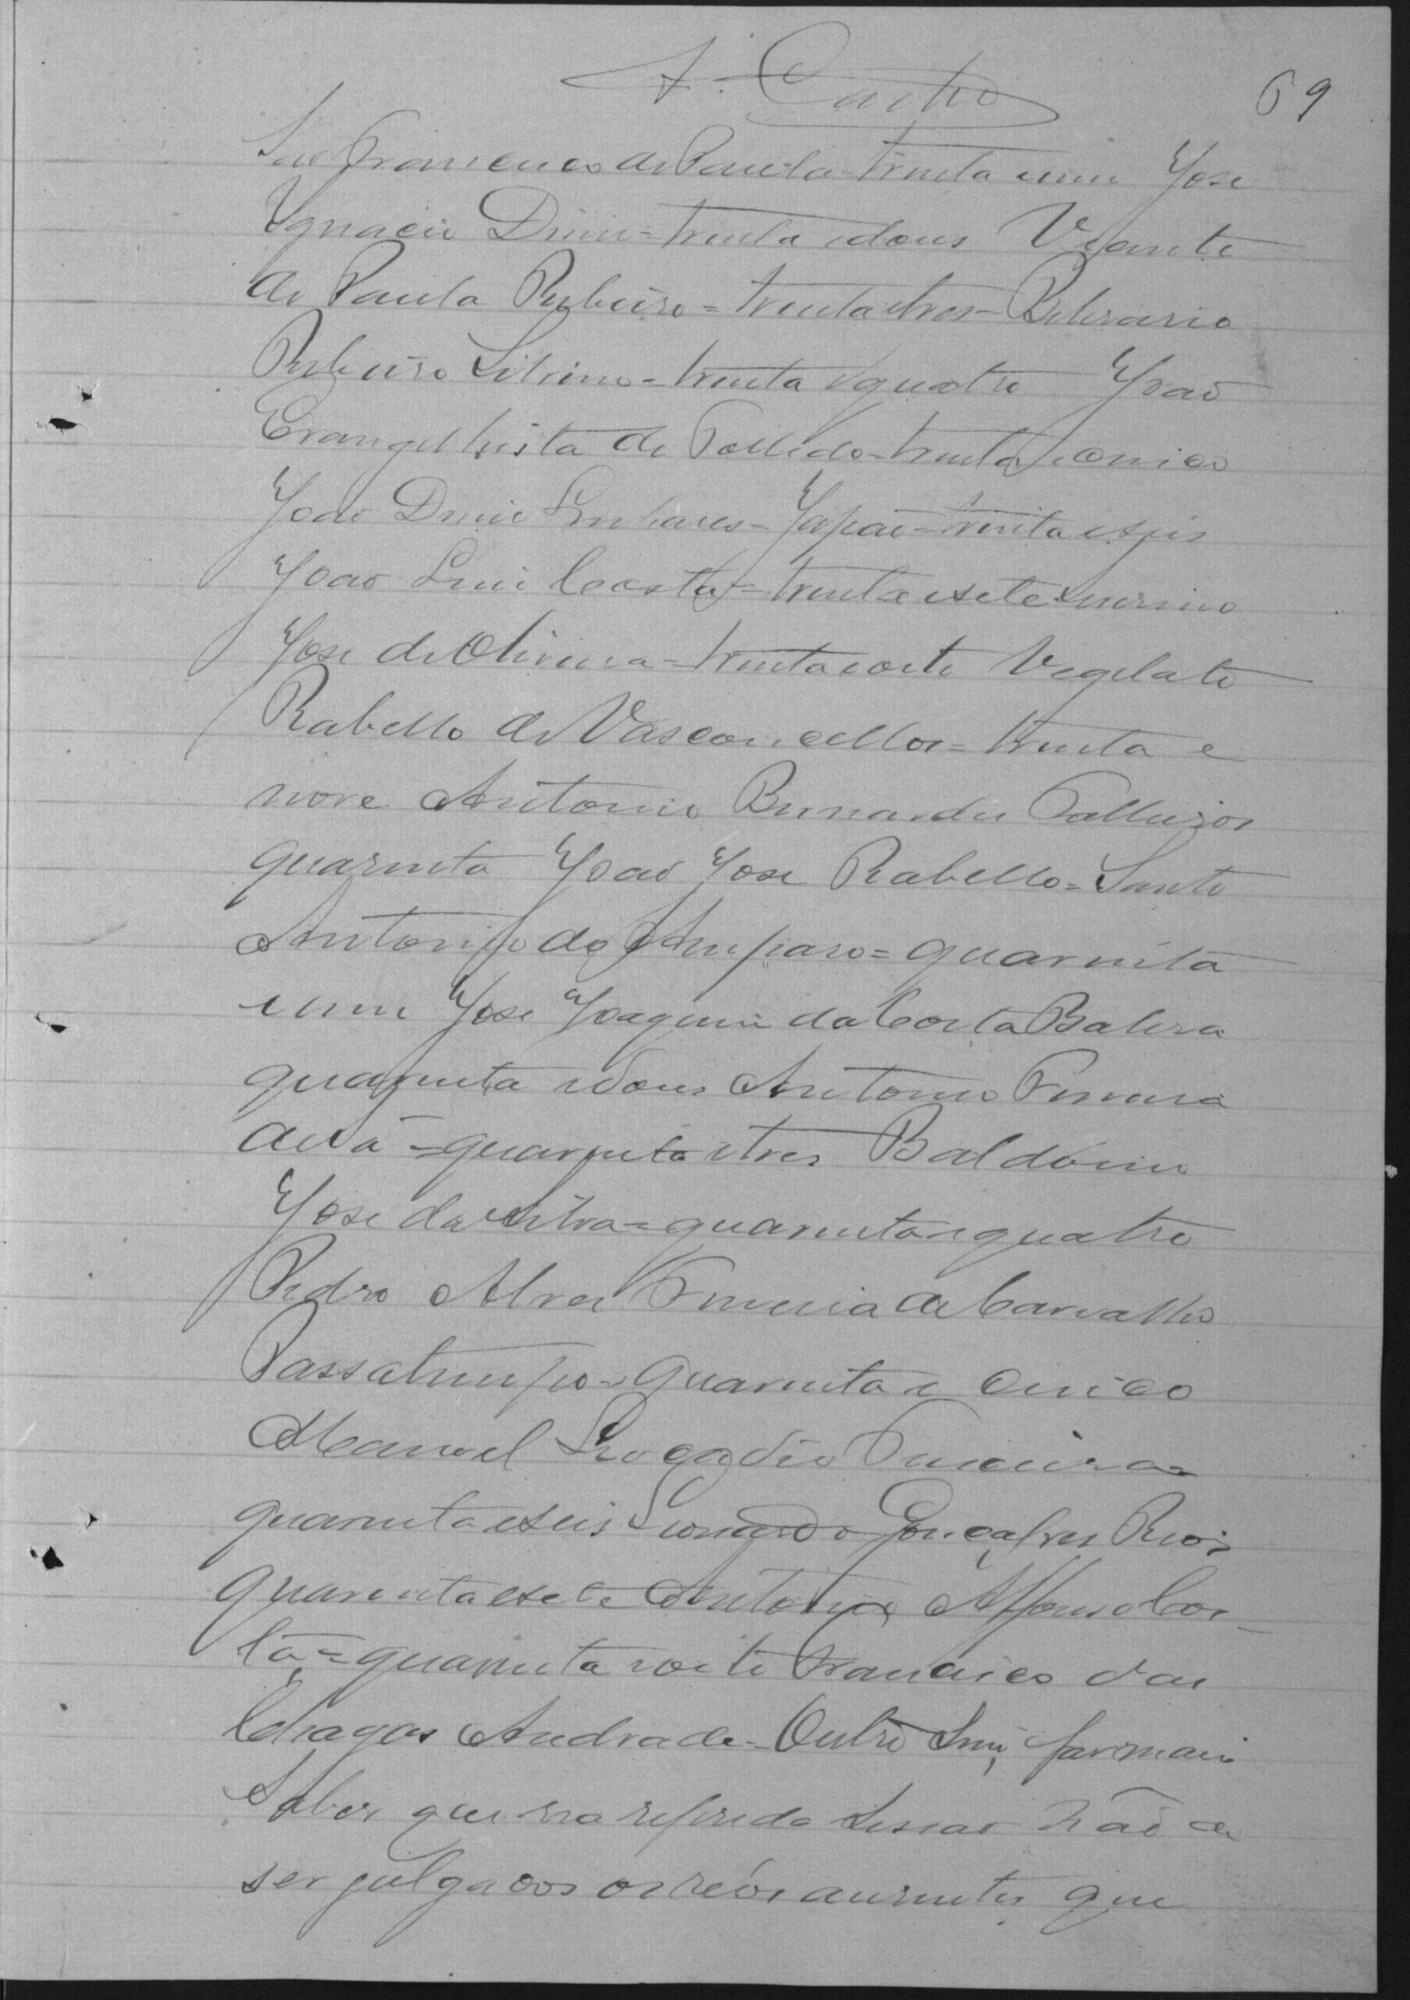 A. Castro
69
São Francisco de Paula = trinta e um José
Ignacio Diniz = trinta e dous Vicente
de Paula Ribeiro = trinta e tres = Belizario
Ribeiro Silvino = trinta e quatro João
Evangelhista de Tolledo = trinta e cinco
João Diniz Linhares = Japão = trinta e seis
João Luiz Costa = trinta e sete
José de Oliveira = trinta e oito
Rabello de Vasconcellos = trinta e
nove Antonio Bernardes
quarenta João José Rabello = Santo
Antonio do Amparo = quarenta
e um José Joaquim da Costa
quarenta e dous Antonio Ferreira
de Sá = quarenta e tres Baldoino
José da Silva = quarenta e quatro
Pedro Alves Ferreira de Carvalho
Passatempo = quarenta e cinco
Manoel Leogadio Ferreira =
quarenta e seis Leonardo Gonçalves Rios
quarenta e sete Antonio Affonso Cos-
ta = quarenta e oito Francisco das
Chagas Andrade = Outro Sim, faz mais
saber que na referida sessão hão de
ser julgados os réos ausentes que